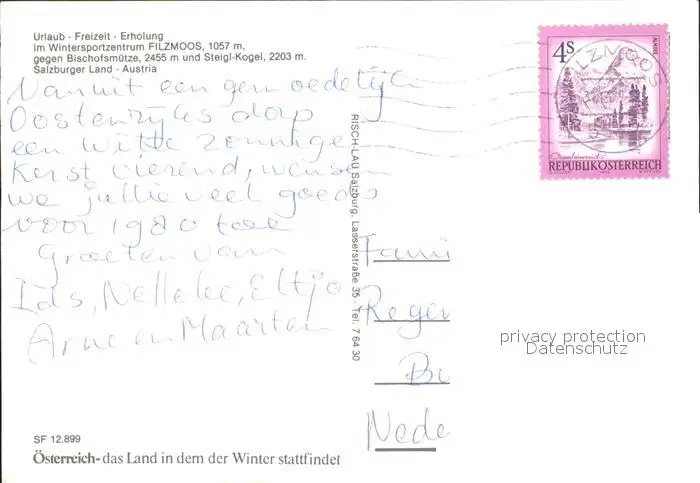 Urlaub - Freizeit - Erholung
im Wintersportzentrum FILZMOOS, 1057 m,
gegen Bischofsmütze, 2455 m und Steigl-Kogel, 2203 m.
Salzburger Land - Austria
Vanuit een gemoedelijk
Oostenrijks dorp
een witte zonnige
Kerst vierend, wensen
we jullie veel goeds
voor 1980 toe
Groeten van
Ids, Nelleke, Eltjo
Arne en Maarten
SF 12.899
Österreich - das Land in dem der Winter stattfindet
RISCH-LAU Salzburg, Lasserstraße 35 - Tel. 7 64 30
4s
ALMSEE
REPUBLIK ÖSTERREICH
FILZMOOS
Fami
Regen
Bu
Nede
privacy protection
Datenschutz